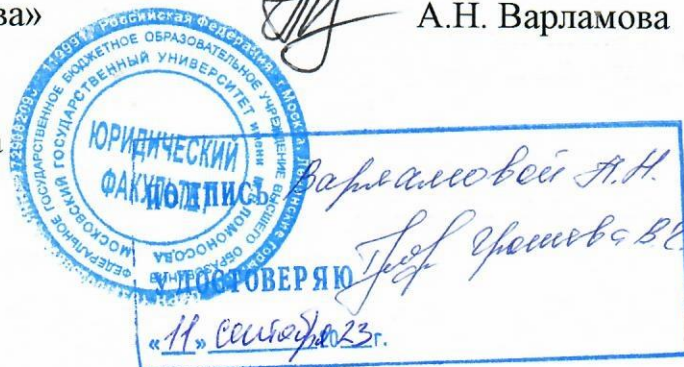 ва»
А.Н. Варламова
119991, Российская Федерация, г. Москва, Ленинские горы
ФЕДЕРАЛЬНОЕ ГОСУДАРСТВЕННОЕ БЮДЖЕТНОЕ ОБРАЗОВАТЕЛЬНОЕ УЧРЕЖДЕНИЕ ВЫСШЕГО ОБРАЗОВАНИЯ
МОСКОВСКИЙ ГОСУДАРСТВЕННЫЙ УНИВЕРСИТЕТ имени М.В. ЛОМОНОСОВА
ЮРИДИЧЕСКИЙ
ФАКУЛЬТЕТ
ПОДПИСЬ Варламовой А.Н.
УДОСТОВЕРЯЮ
«11» сентября 2023г.